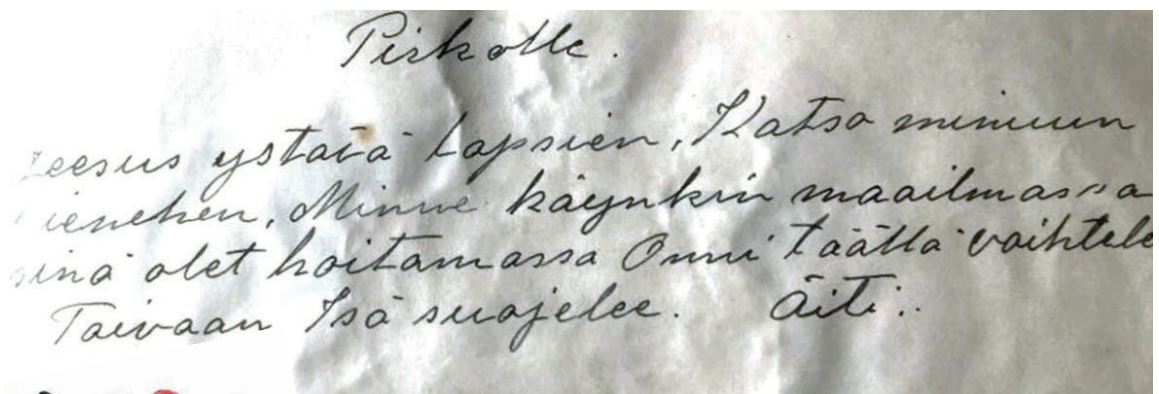 Pirkolle.
Jeesus ystävä lapsien, Katso minuun
pienehen, Minne käynkin maailmassa
sinä olet hoitamassa Onni täällä vaihtele
Taivaan Isä suojelee. Äiti..